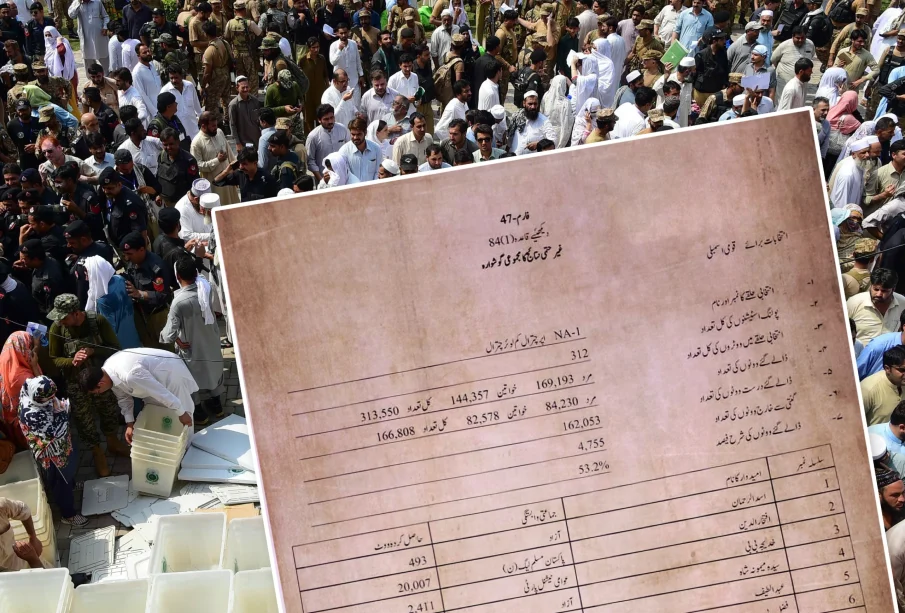 فارم-47
دیکھیئے قاعدہ (1)84
غیر حتمی نتائج کا مجموعی گوشوارہ
انتخابات برائے قومی اسمبلی
۱- انتخابی حلقے کا نمبر اور نام NA-1 اپر چترال کم لوئر چترال
۲- پولنگ اسٹیشنوں کی کل تعداد 312
۳- انتخابی حلقے میں ووٹروں کی کل تعداد مرد 169,193 خواتین 144,357 کل تعداد 313,550
۴- ڈالے گئے ووٹوں کی تعداد مرد 84,230 خواتین 82,578 کل تعداد 166,808
۵- ڈالے گئے درست ووٹوں کی تعداد 162,053
۶- گنتی سے خارج ووٹوں کی تعداد 4,755
۷- ڈالے گئے ووٹوں کی شرح فیصد 53.2%
سلسلہ نمبر امیدوار کا نام جماعتی وابستگی حاصل کردہ ووٹ
1 اسد الرحمان آزاد 493
2 افتخار الدین پاکستان مسلم لیگ (ن) 20,007
3 خدیجہ بی بی عوامی نیشنل پارٹی 2,411
4 سیدہ میمونہ شاہ آزاد
5 عبد الطیف
6